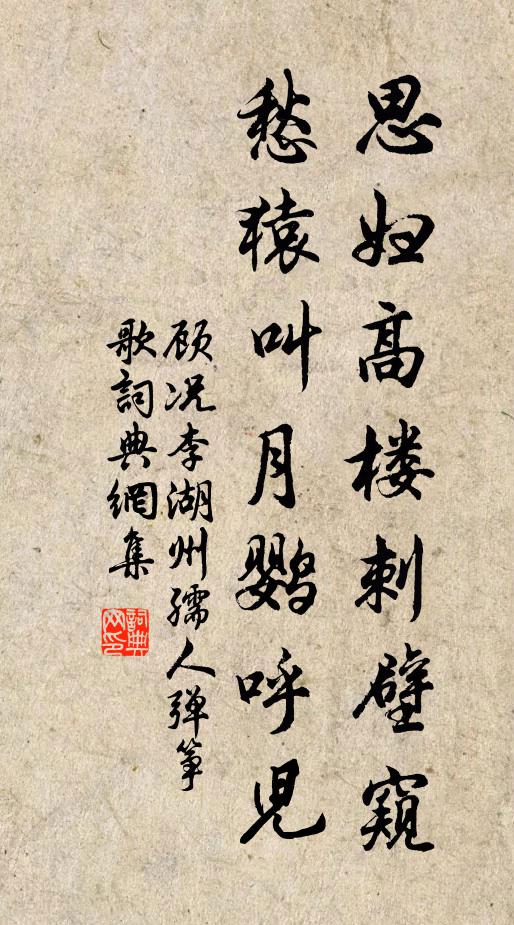 思妇高楼刺壁窥
愁猿叫月鹦呼児
顾况李湖州孺人弹筝
歌詞典網集
詞典
网印